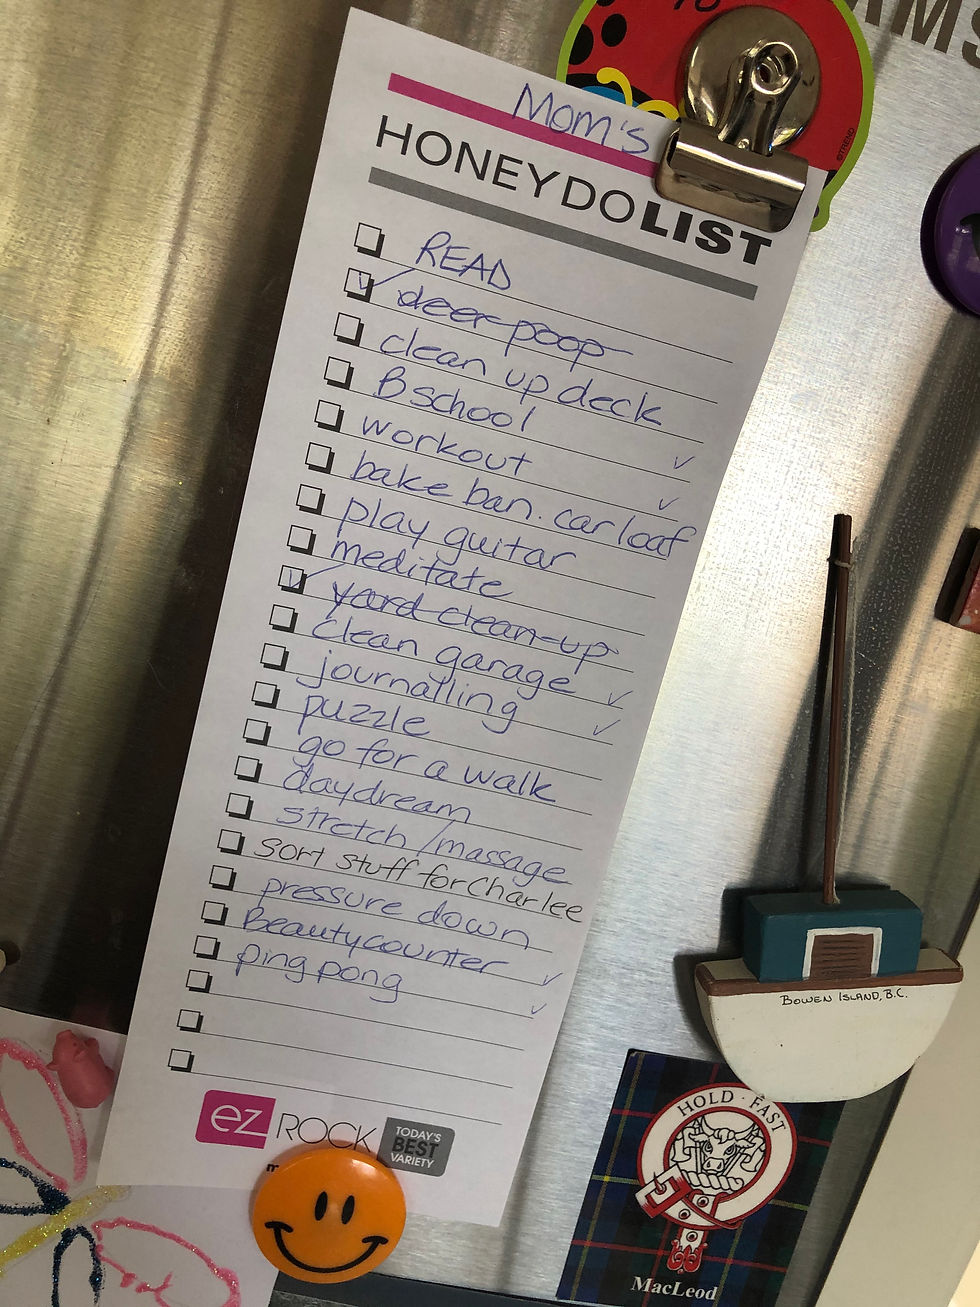 Mom's
HONEYDOLIST
READ
deer poop
clean up deck
B school
workout
bake ban. car loaf
play guitar
meditate
yard clean-up
clean garage
journalling
puzzle
go for a walk
daydream
stretch/massage
sort stuff for Charlee
pressure down
Beautycounter
ping pong
ez ROCK
TODAY'S
BEST
VARIETY
©TREND
BOWEN ISLAND, B.C.
HOLD · FAST
MacLeod